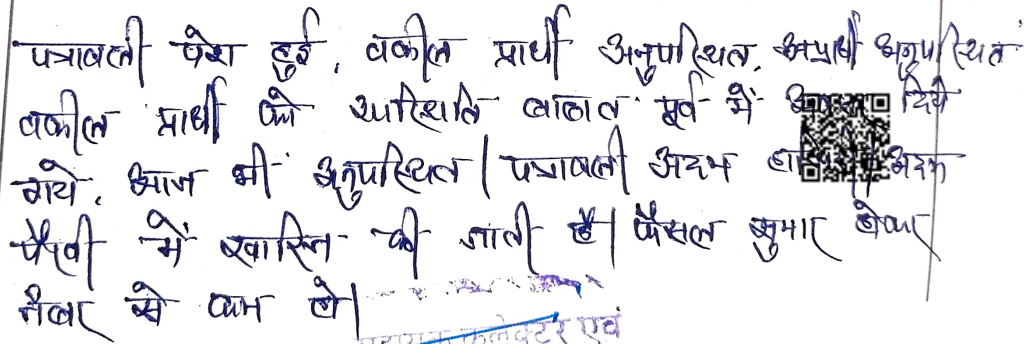 पत्रावली पेश हुई, वकील प्रार्थी अनुपस्थित, अप्रार्थी अनुपस्थित
वकील प्रार्थी को उपस्थिति बाबत पूर्व में दिये
गये, आज भी अनुपस्थित। पत्रावली अदम अदम
पैरवी में खारिज की जाती है। फैसल शुमार होकर
नंबर से कम हो।
कलेक्टर एवं